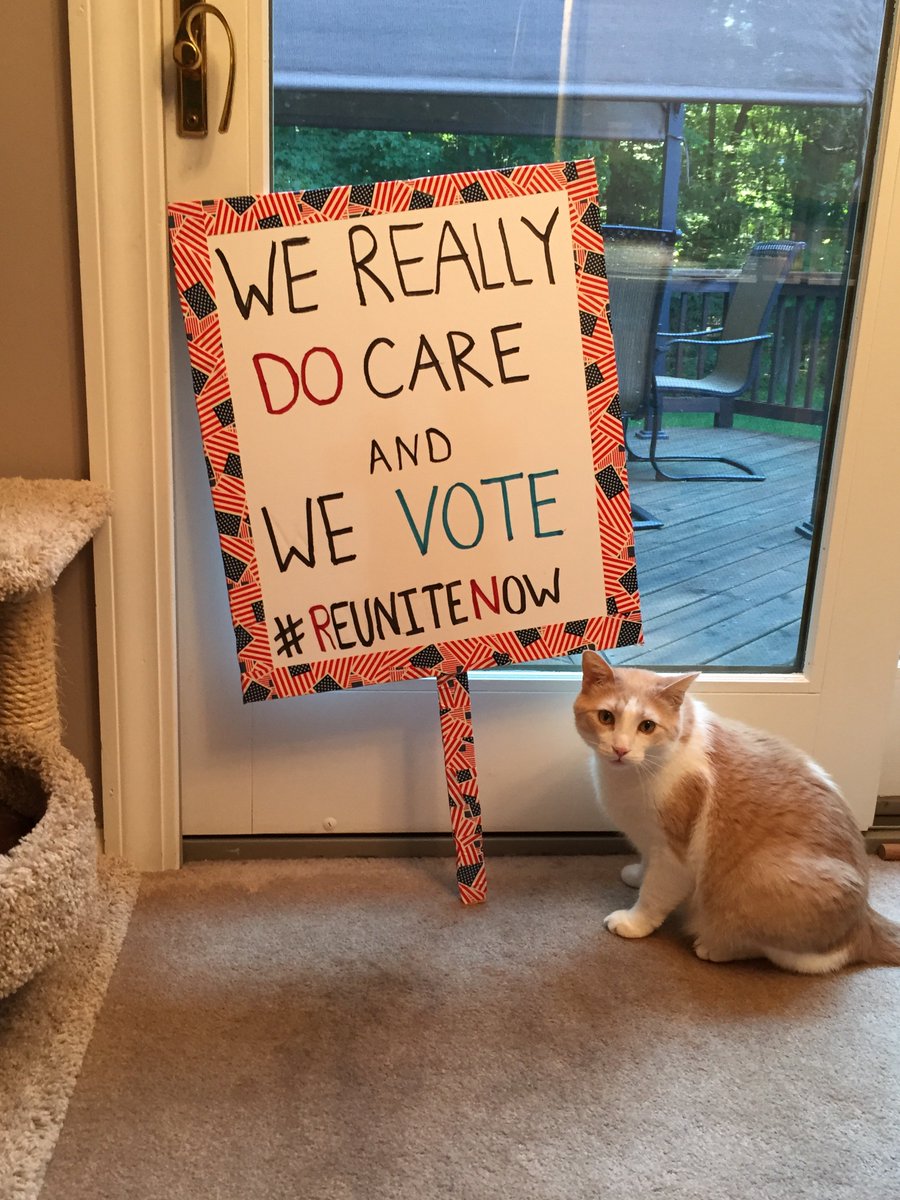 WE REALLY
DO CARE
AND
WE VOTE
#REUNITENOW